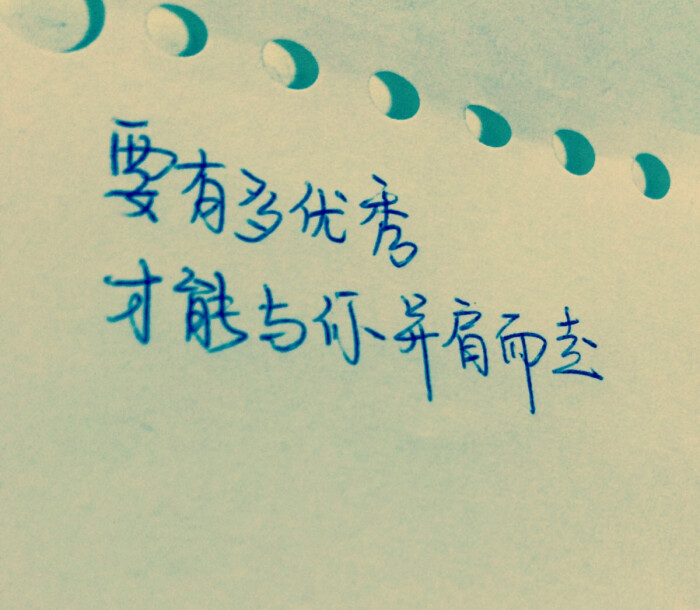 要有多优秀
才能与你并肩而走